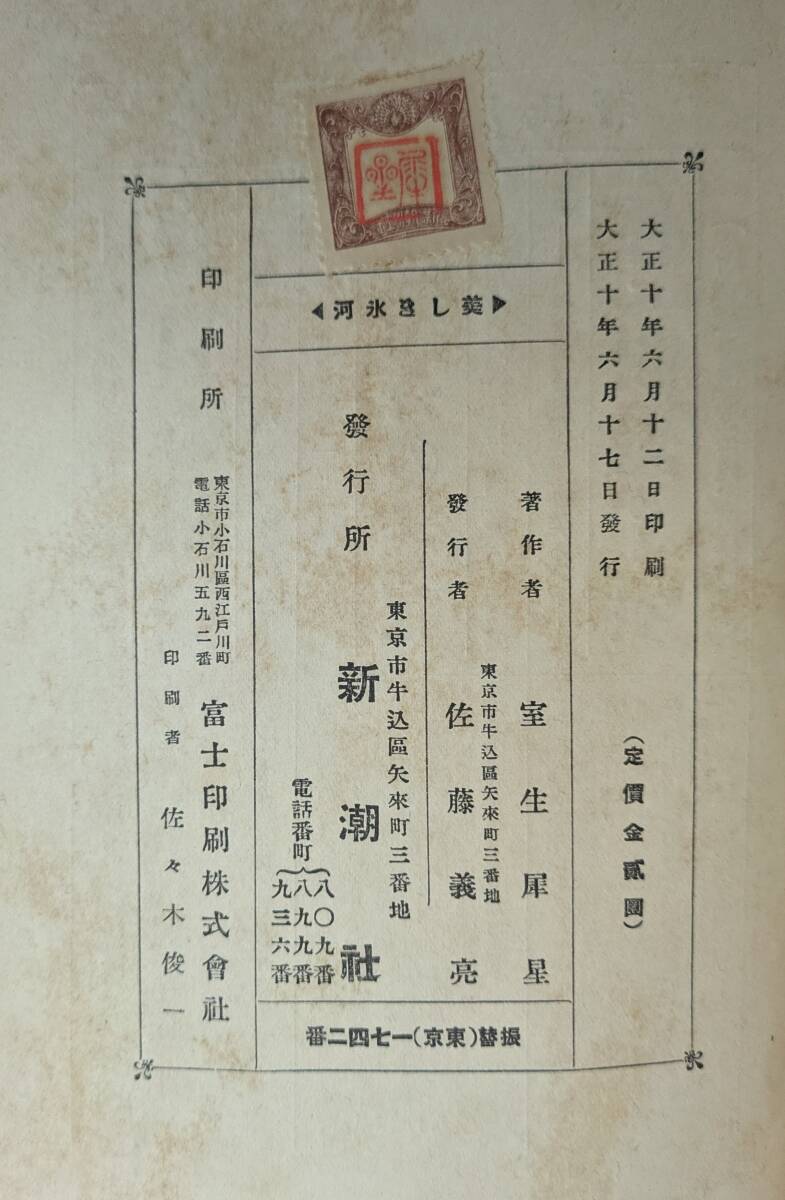 大正十年六月十二日印刷
大正十年六月十七日發行
（定價金貳圓）
▶美しき氷河◀
著作者 室生犀星
東京市牛込區矢來町三番地
發行者 佐藤義亮
東京市牛込區矢來町三番地
發行所 新潮社
電話番町
八〇九番
八九九番
九三六番
振替(東京)一七四二番
東京市小石川區西江戸川町
電話小石川五九二番
印刷所 富士印刷株式會社
印刷者 佐々木俊一